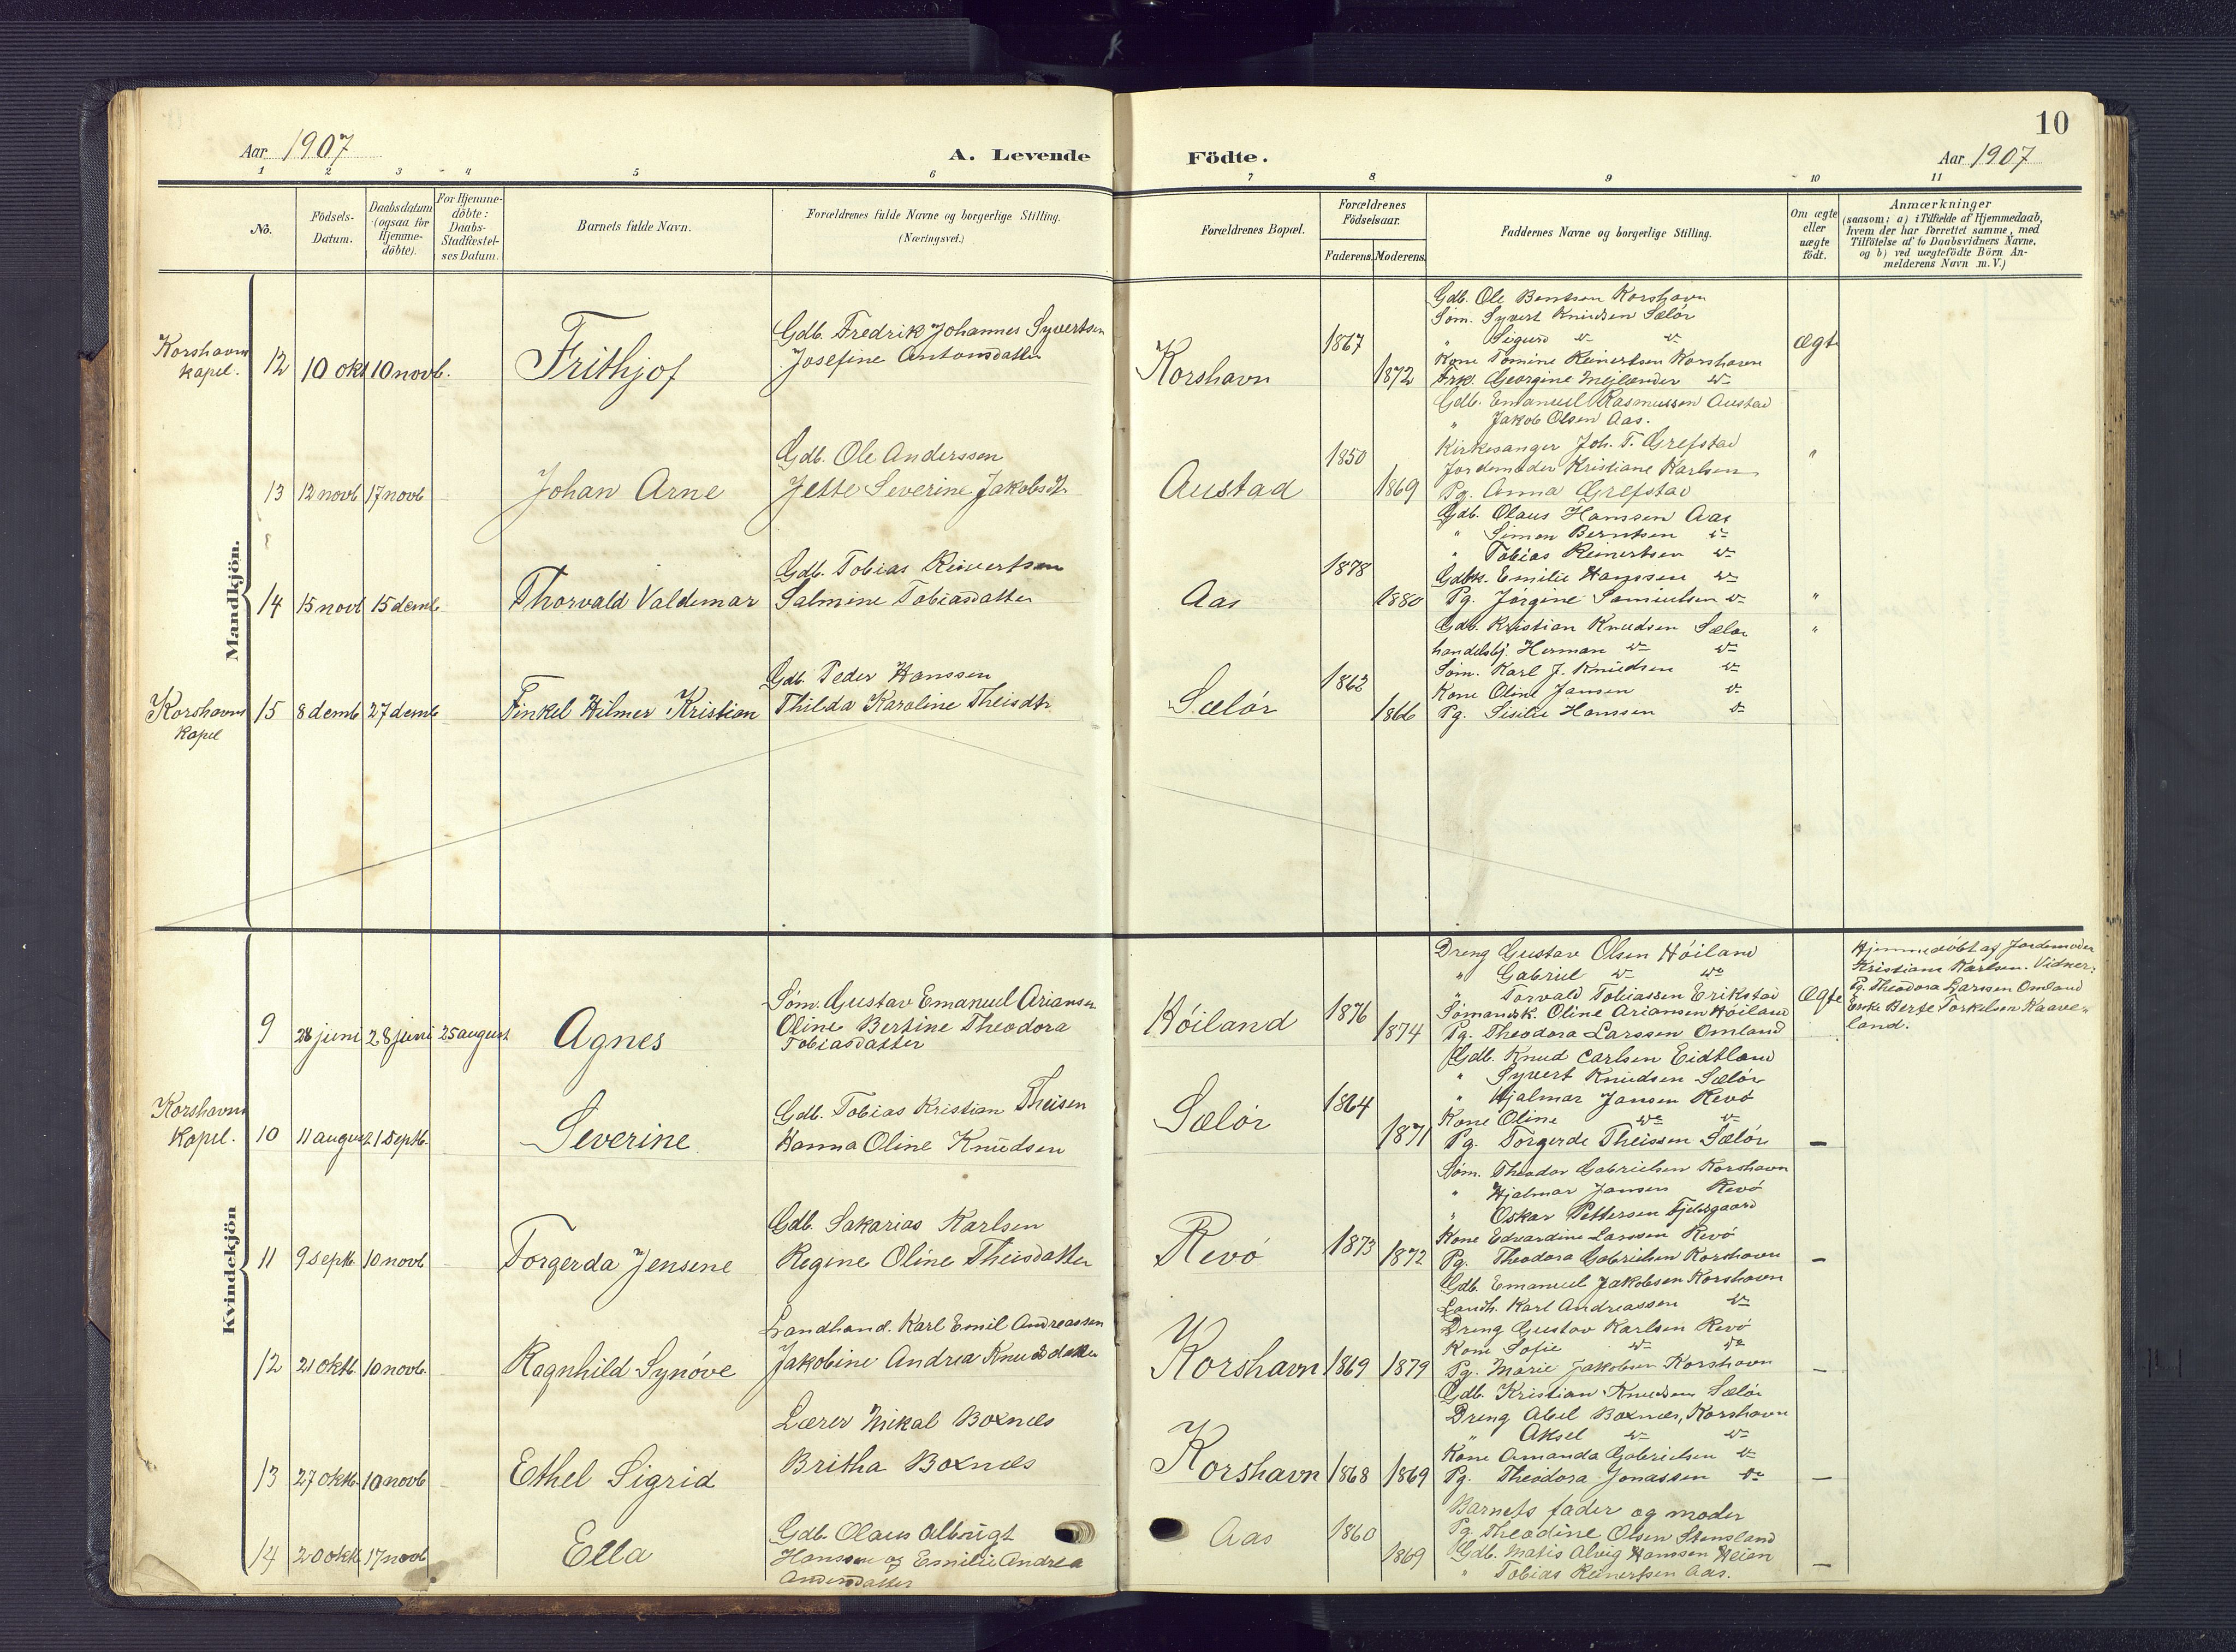 10
Aar 1907
A. Levende Födte.
Aar 1907
1 2 3 4 5 6 7 8 9 10 11
No.
Födsels-
Datum.
Daabsdatum
(ogsaa for
Hjemme-
döbte).
For Hjemme-
döbte:
Daabs-
Stadfæstel-
ses Datum.
Barnets fulde Navn.
Forældrenes fulde Navne og borgerlige Stilling.
(Næringsvei.)
Forældrenes Bopæl.
Forældrenes
Födselsaar.
Faderens. Moderens.
Faddernes Navne og borgerlige Stilling.
Om ægte
eller
uægte
födt.
Anmærkninger
(saasom: a) i Tilfælde af Hjemmedaab,
hvem der har forrettet samme, med
Tilföielse af to Daabsvidners Navne,
og b) ved uægtefödte Börn An-
melderens Navn m. V.)
Mandkjön.
Korshavn
kapel.
12 10 okt 10 novb.
Frithjof
Gdb. Fredrik Johannes Syvertsen
Josefine Antonsdatter
Korshavn
1867
1872
Gdb. Ole Bentsen Korshavn
Søm. Syvert Knudsen Sælör
" Sigurd do do
Kone Tomine Reinertsen Korshavn
Frk. Georgine Mejlænder do
Ægte
13 12 novb 17 novb
Johan Arne
Gdb. Ole Anderssen
Jette Severine Jakobsdtr
Austad
1850
1869
Gdb. Emanuel Rasmussen Austad
" Jakob Olsen Aas.
Kirkesanger Joh. T. Grefstad
Jordemoder Kristiane Karlsen
Pg. Anna Grefstad
"
14 15 novb 15 demb
Thorvald Valdemar
Gdb. Tobias Reinertsen
Salmine Tobiasdatter
Aas
1878
1880
Gdb. Olaus Hanssen Aas
" Simon Berntsen do
" Tobias Reinertsen do
Gdbk. Emilie Hanssen do
Pg. Jörgine Samuelsen do
"
Korshavn
Kapel
15 8 demb 27 demb
Finkel Hilmer Kristian
Gdb. Peder Hanssen
Thilda Karoline Theisdtr
Sælör
1862
1866
Gdb. Kristian Knudsen Sælör
handelsbj. Herman do do
Søm. Karl J. Knudsen do
Kone Oline Jansen do
Pg. Sisilie Hanssen do
"
Kvindekjön
9 28 juni 28 juni 25 august
Agnes
Søm. Gustav Emanuel Ariansen
Oline Bertine Theodora
Tobiasdatter
Höiland
1876
1874
Dreng Gustav Olsen Höiland
" Gabriel do do
" Torvald Tobiassen Erikstad
Sömandsk. Oline Ariansen Höiland
Pg. Theodora Larssen Omland
Ægte
Hjemmedöbt af Jordemoder
Kristiane Karlsen. Vidner:
Pg. Theodora Larssen Omland
Enke Berte Torkelsen Kaave-
land.
Korshavn
Kapel.
10 11 august 1 Septb.
Severine
Gdb. Tobias Kristian Theisen
Hanna Oline Knudsen
Sælör
1864
1871
Gdb. Knud Carlsen Eidtland
" Syvert Knudsen Sælör
" Hjalmar Jansen Revö
Kone Oline do do
Pg. Torgerde Theissen Sælör
—
11 9 septb 10 novb
Torgerda Jensene
Gdb. Sakarias Karlsen
Regine Oline Theisdatter
Revö
1873
1872
Søm. Theodor Gabrielsen Korshavn
" Hjalmar Jansen Revö
" Oskar Pettersen Fjeldsgaard
Kone Edvardine Larssen Revö
Pg. Theodora Gabrielsen Korshavn
—
12 21 oktb. 10 novb.
Ragnhild Synöve
Landhand. Karl Emil Andreassen
Jakobine Andrea Knudsdatter
Korshavn
1869
1879
Gdb. Emanuel Jakobsen Korshavn
Landh. Karl Andreassen do
Dreng Gustav Karlsen Revö
Kone Sofie do do
Pg. Marie Jakobsen Korshavn
—
13 27 oktb. 10 novb
Ethel Sigrid
Lærer Mikal Boxnæs
Britha Boxnæs
Korshavn
1868
1869
Gdb. Kristian Knudsen Sælör
Dreng Abel Boxnæs, Korshavn
" Aksel do do
Kone Amanda Gabrielsen do
Pg. Theodora Jonassen do
—
14 20 oktb 17 novb
Ella
Gdb. Olaus Albrigt
Hanssen og Emilie Andrea
Andersdatter
Aas
1860
1869
Barnets fader og moder
Pg. Theodine Olsen Stensland
Gdb. Matis Alvig Hanssen Heien
" Tobias Reinertsen Aas.
—